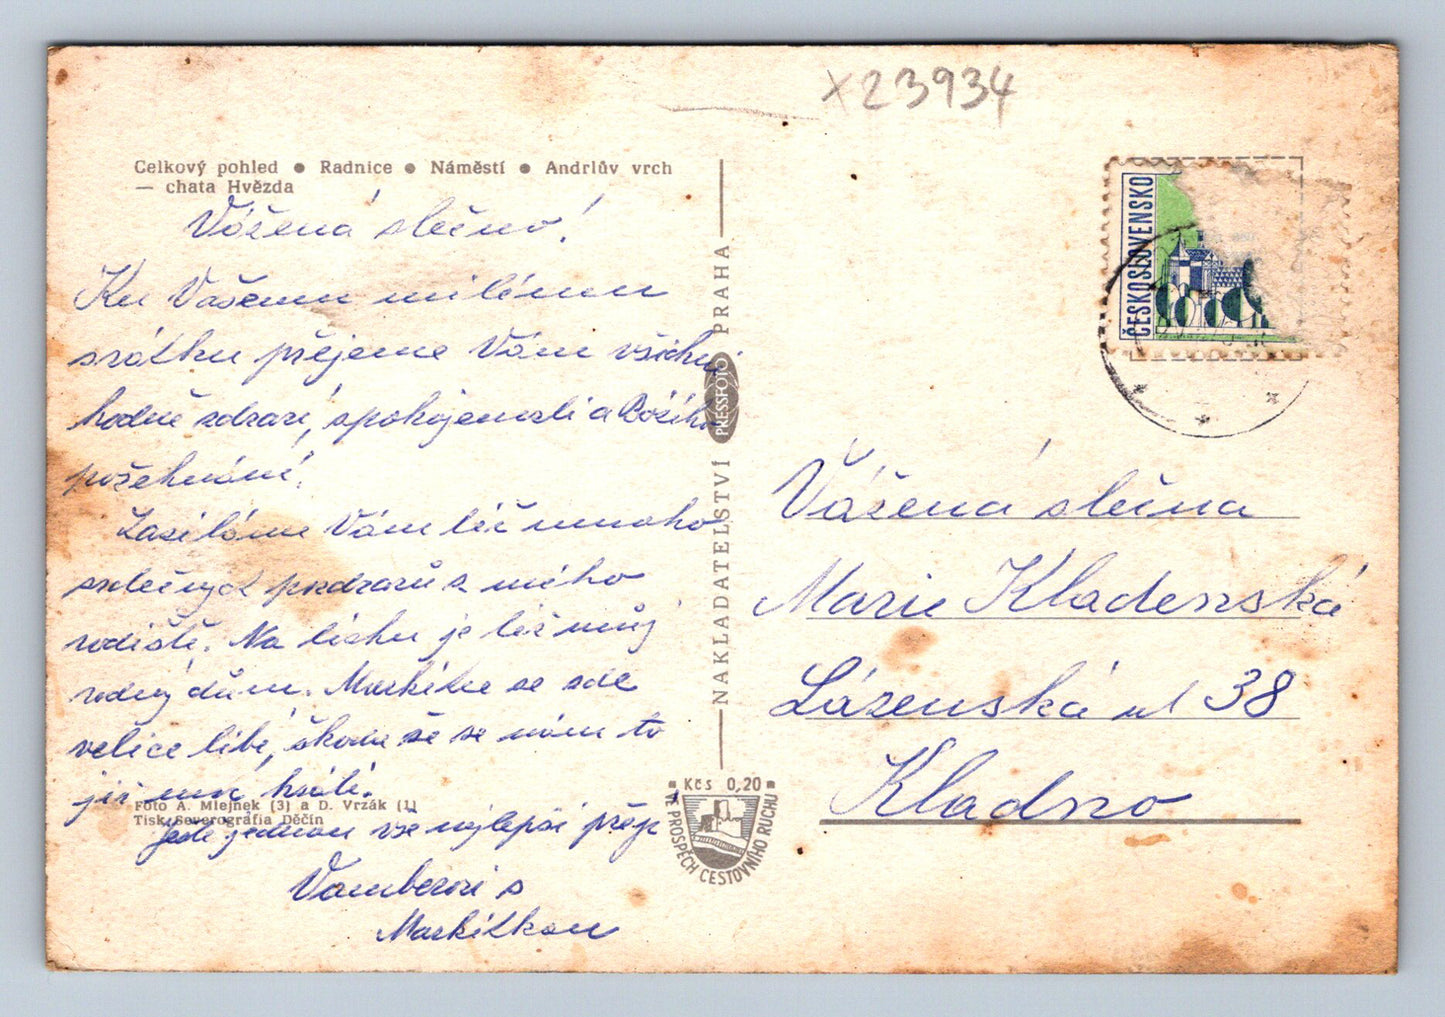 X23934
Celkový pohled ● Radnice ● Náměstí ● Andrlův vrch
— chata Hvězda
Vážená slečno!
Ku Vašemu milému
svátku přejeme Vám všichni
hodně zdraví, spokojenosti a Božího
požehnání.
Zasíláme Vám též mnoho
srdečných pozdravů z mého
rodiště. Na líchu je též můj
rodný dům. Markétce se zde
velice líbí, škoda že se nám to
již
krátí.
Foto A. Mlejnek (3) a D. Vrzák (1)
Tisk Severografia Děčín
Ještě jednou vše nejlepší přejí
Vamberovi s
Markétkou
NAKLADATELSTVÍ PRESSFOTO PRAHA
Kčs 0,20
VE PROSPĚCH CESTOVNÍHO RUCHU
ČESKOSLOVENSKO
Vážená slečna
Marie Kladenská
Lázeňská ul 38
Kladno